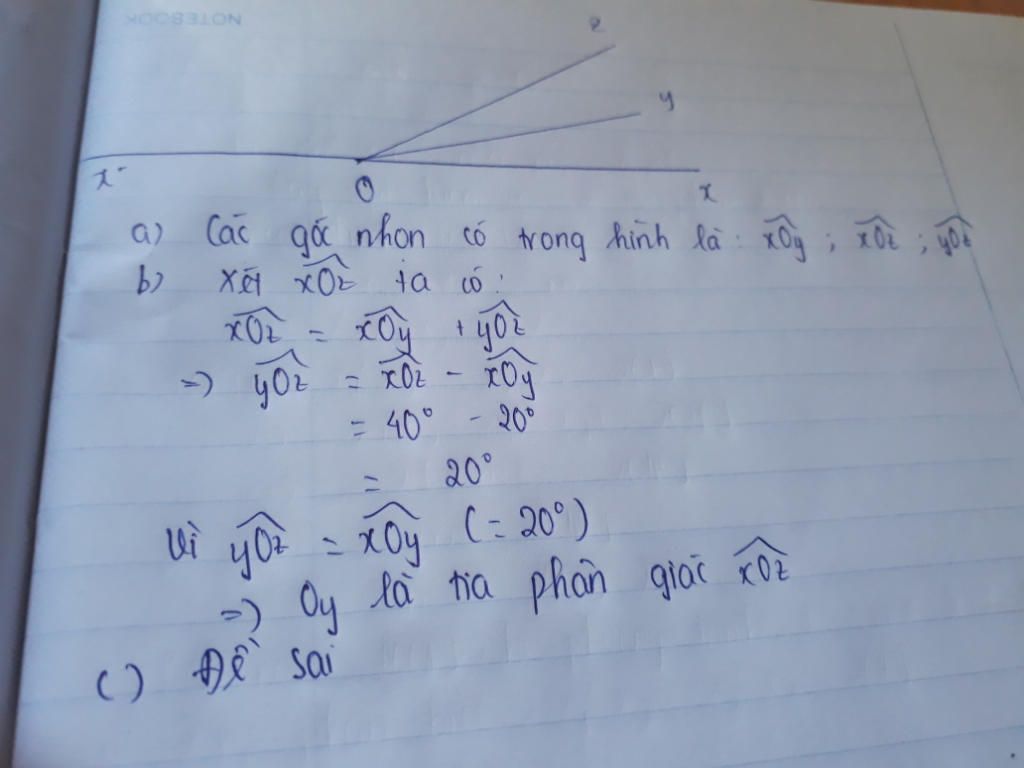 NOTEBOOK
z
y
x'
O
x
a) Các góc nhọn có trong hình là: xOy ; xOz ; yOz
b) Xét xOz ta có:
xOz = xOy + yOz
=) yOz = xOz - xOy
= 40° - 20°
= 20°
Vì yOz = xOy (= 20°)
=) Oy là tia phân giác xOz
c) Đề sai